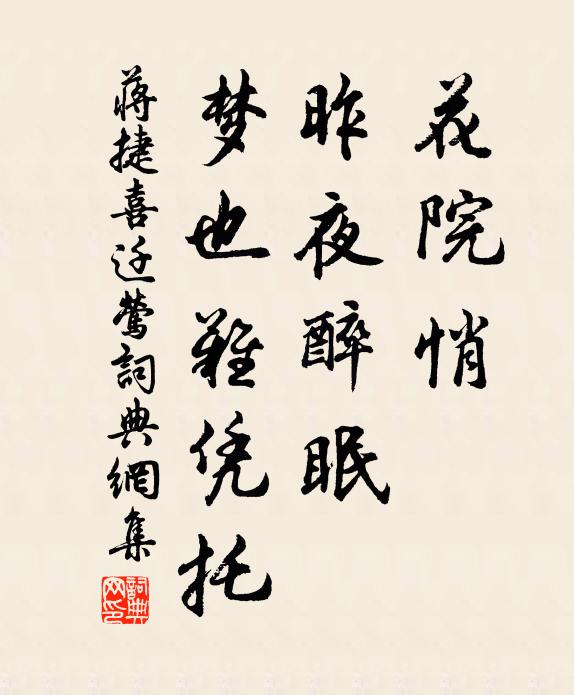 花院悄
昨夜醉眠
梦也难凭托
蒋捷喜迁莺詞典網集
詞典網印